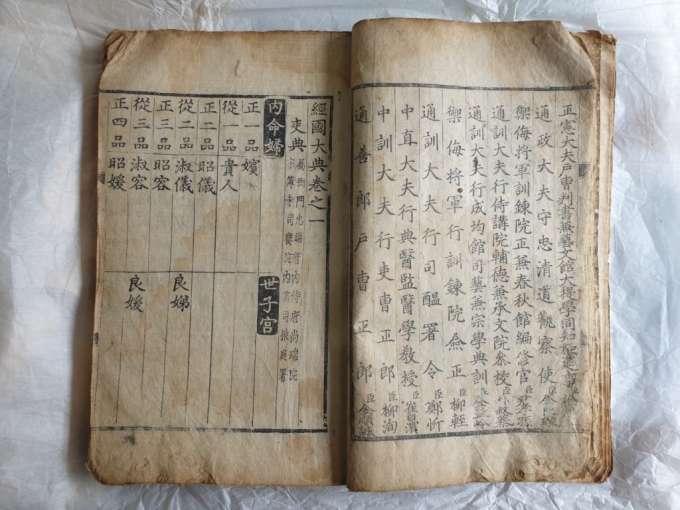 正憲大夫戶曹判書兼藝文館大提學同知
通政大夫守忠清道觀察使臣
禦侮將軍訓鍊院正兼春秋館編修官臣
通訓大夫行侍講院輔德兼承文院參校臣
通訓大夫行成均館司藝兼宗學典訓臣
禦侮將軍行訓鍊院僉正臣柳輕
通訓大夫行司醞署令臣鄭忻
中直大夫行典醫監醫學教授臣崔
中訓大夫行吏曹正郎臣柳洵
通善郎戶曹正郎臣金順
經國大典卷之一
吏典
內命婦 世子宮
正一品嬪
從一品貴人
正二品昭儀
從二品淑儀 良娣
正三品昭容
從三品淑容 良媛
正四品昭媛